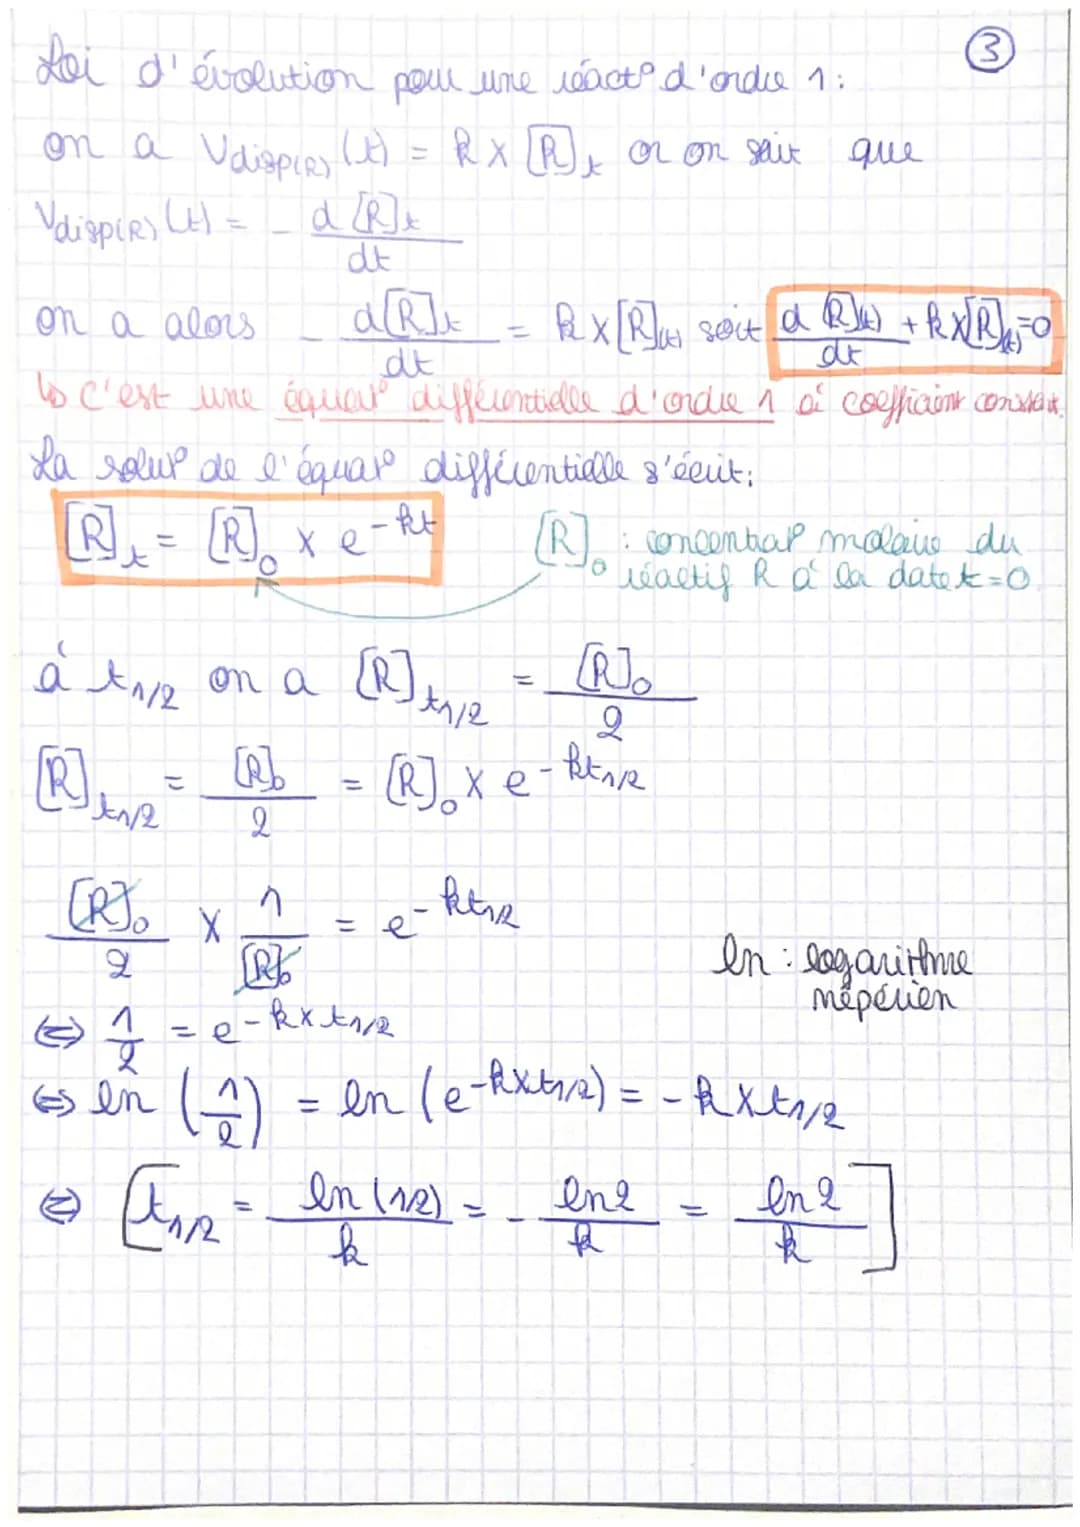 ③
Loi d'évolution pour une réact° d'ordre 1 :
on a Vdisp(R) (t) = k × [R]t or on sait que
Vdisp(R) (t) = - d [R]t / dt
on a alors - d[R]t / dt = k × [R](t) soit d [R](t) / dt + k×[R](t) = 0
↳ C'est une équat° différentielle d'ordre 1 à coefficient constant.
La solut° de l'équat° différentielle s'écrit :
[R]t = [R]0 × e^-kt
[R]0 : concentrat° molaire du
réactif R à la date t = 0.
à t1/2 on a [R]t1/2 = [R]0 / 2
[R]t1/2 = [R]0 / 2 = [R]0 × e^-kt1/2
[R]0 / 2 × 1 / [R]0 = e^-kt1/2
ln : logarithme
népérien
⇔ 1/2 = e^-k×t1/2
⇔ ln (1/2) = ln (e^-k×t1/2) = - k×t1/2
⇔ [t1/2 = ln (1/2) / k = - ln2 / k = ln 2 / k]